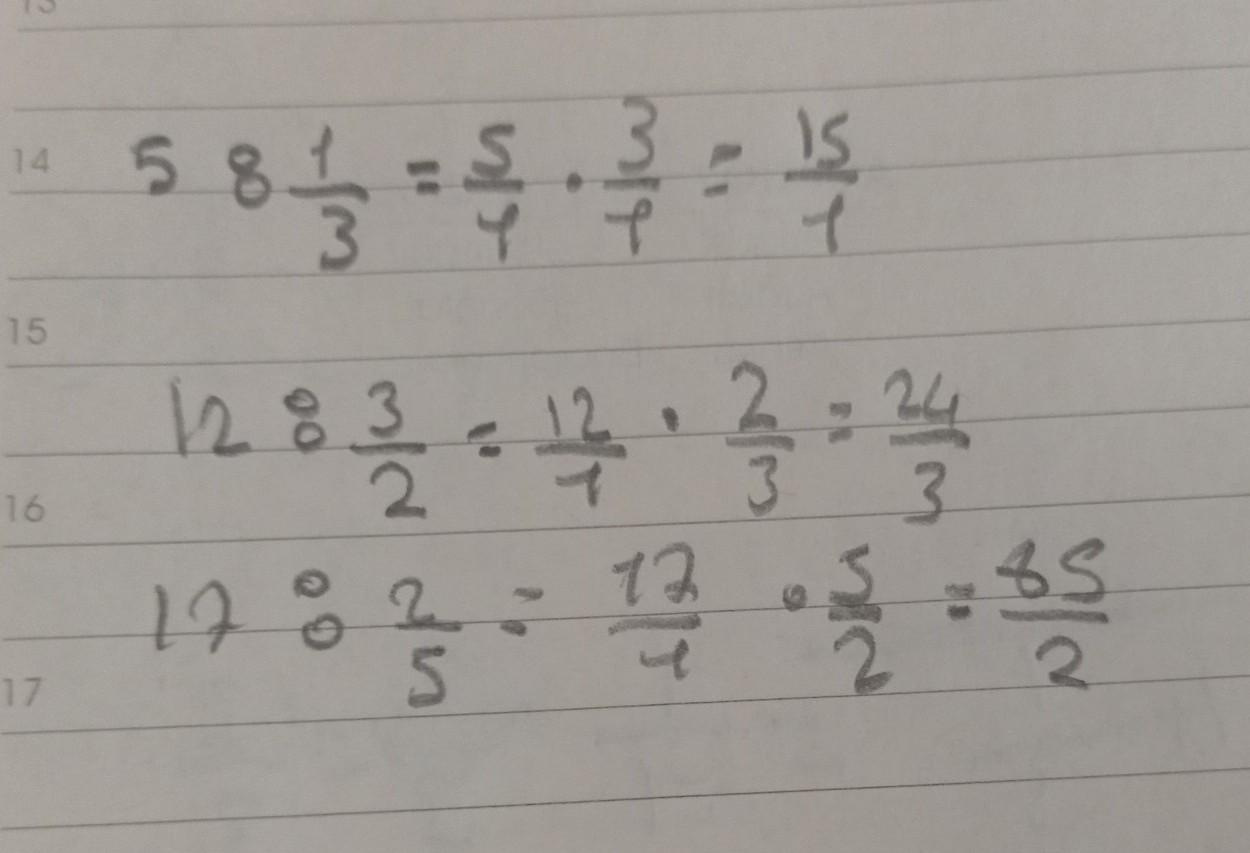 13
14 5 : 1/3 = 5/1 · 3/1 = 15/1
15
12 : 3/2 = 12/1 · 2/3 = 24/3
16
17 : 2/5 = 17/1 · 5/2 = 85/2
17